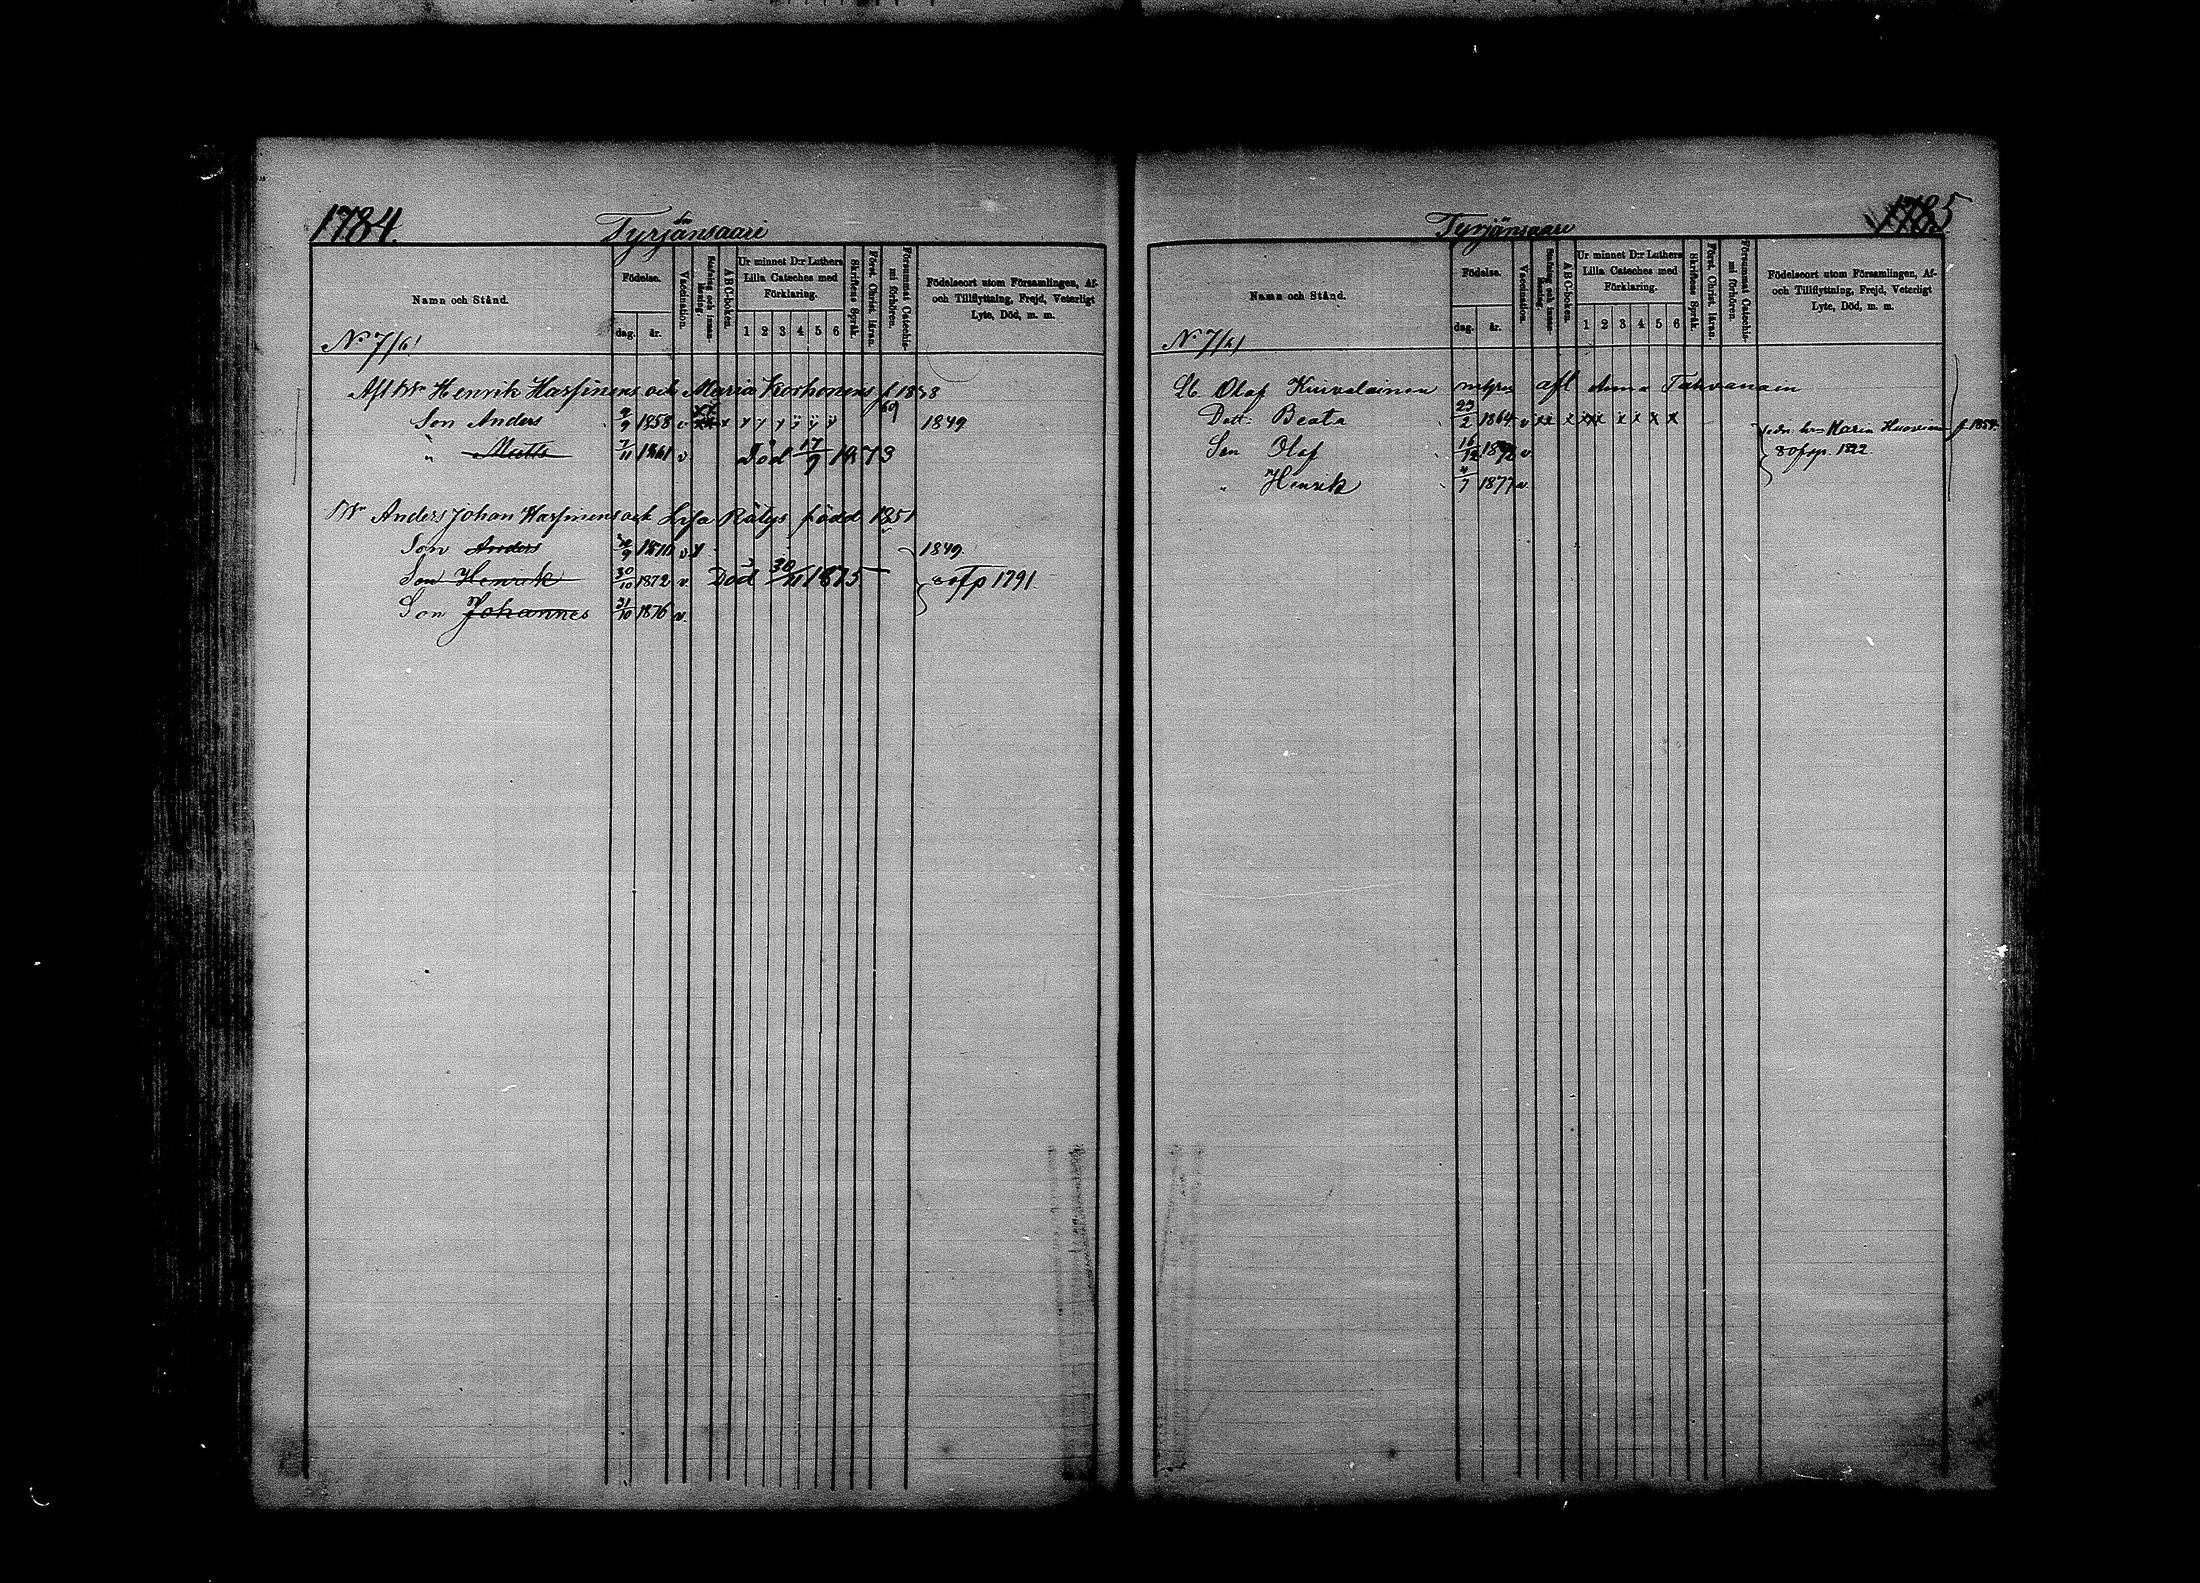 1784.
Tyrjänsaari
Namn och Stånd.
Födelse.
dag.
år.
Vaccination.
Stafning och innanläsning.
ABC-boken.
Ur minnet D:r Luthers Lilla Cateches med Förklaring.
1 2 3 4 5 6
Skriftens Språk.
Först. Christ. läran.
Försummat Catechismi förhören.
Födelseort utom Församlingen, Af- och Tillflyttning, Frejd, Veterligt Lyte, Död, m. m.
No 7/61
Henrik Harsinens och Maria Korhonens f. 1838
Son Anders 9/9 1858 v 1849
" Matts 7/11 1861 v Död 17/9 1873
Anders Johan Harsinens och Lisa Rätys född 1851
Son Anders 1870 v 1849
Son Henrik 30/10 1872 v Död 30/11 1875 1791
Son Johannes 21/10 1876 v.
1785
Tyrjänsaari
Namn och Stånd.
Födelse.
dag.
år.
Vaccination.
Stafning och innanläsning.
ABC-boken.
Ur minnet D:r Luthers Lilla Cateches med Förklaring.
1 2 3 4 5 6
Skriftens Språk.
Först. Christ. läran.
Försummat Catechismi förhören.
Födelseort utom Församlingen, Af- och Tillflyttning, Frejd, Veterligt Lyte, Död, m. m.
No 7/61
Olof Kuivalainen Anna Tahvanain
Dott. Beata 23/2 1864 v xx x xx x x x x Maria f. 1859.
Son Olof 16/12 1872 v. 1822.
" Henrik 4/7 1877 v.